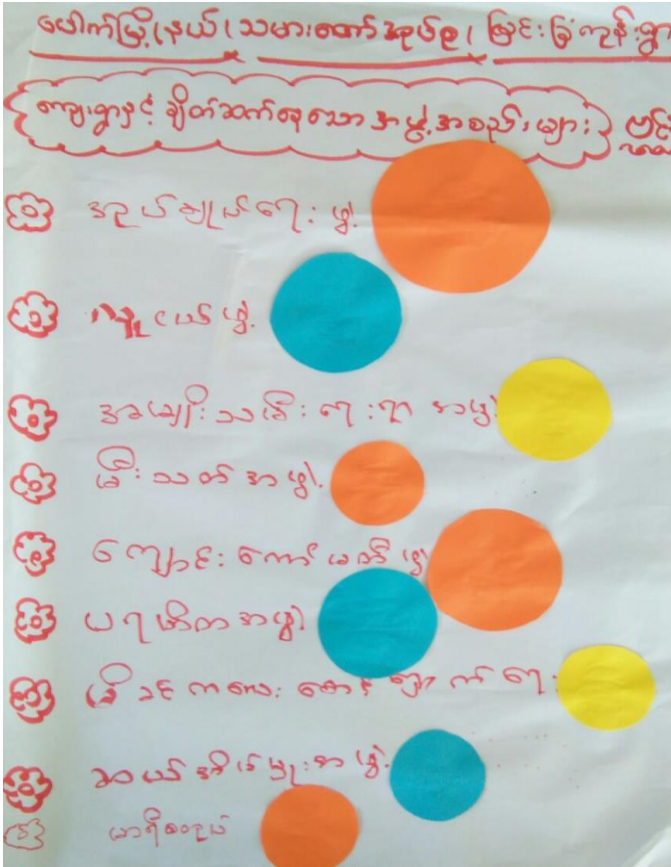 ပေါက်မြို့နယ်၊ သမားတော်အုပ်စု၊ မြင်းခြံကုန်းရွာ
ကျေးရွာနှင့် ချိတ်ဆက်နေသော အဖွဲ့အစည်းများ
အုပ်ချုပ်ရေးဖွဲ့
လူငယ်ဖွဲ့
အမျိုးသမီးရေးရာ အဖွဲ့
မီးသတ်အဖွဲ့
ကျောင်းကော်မတီဖွဲ့
ပရဟိတအဖွဲ့
မိခင်ကလေးစောင့်ရှောက်ရေး
ဆယ်အိမ်မှူးအဖွဲ့